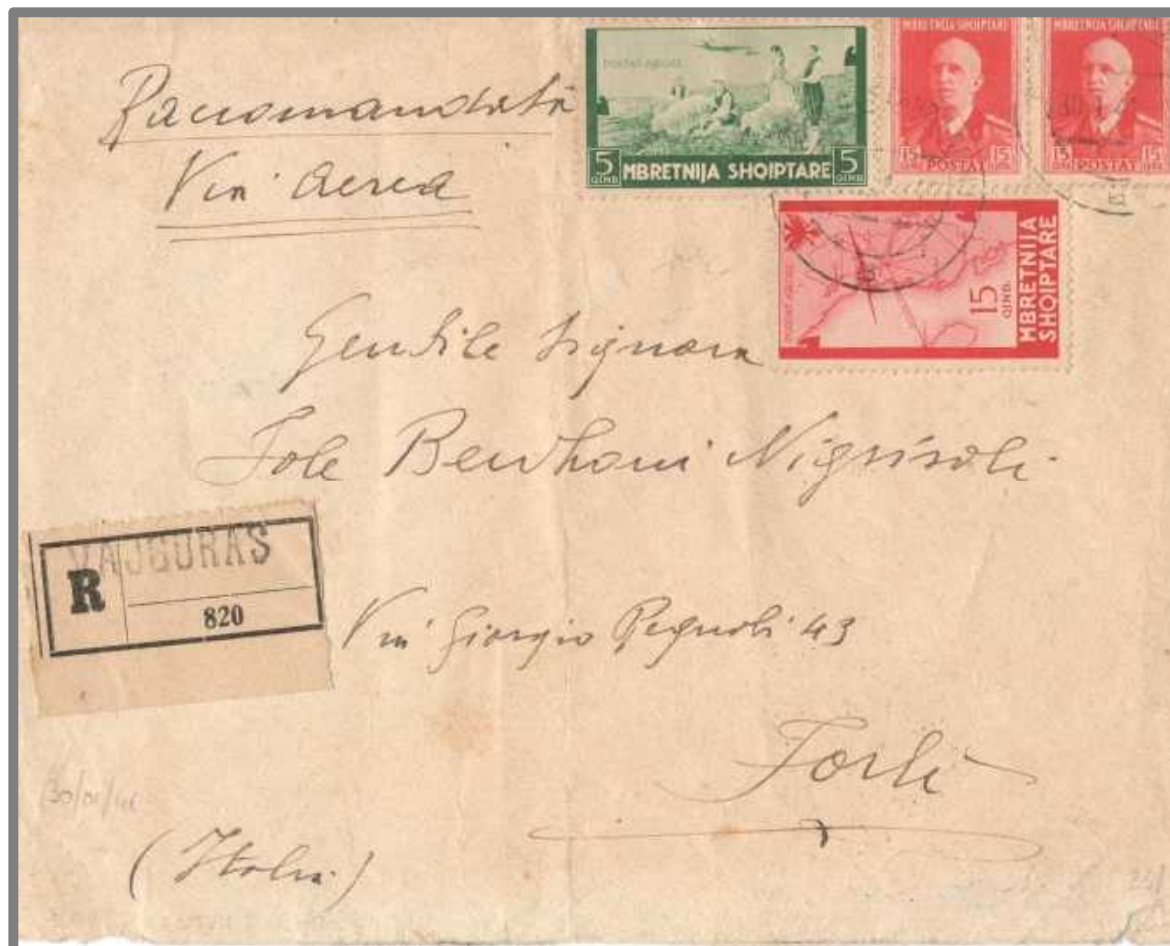 Raccomandata
Via Aerea
POSTAT AJRORE
5 QIND. MBRETNIJA SHQIPTARE 5 QIND.
MBRETNIJA SHQIPTARE
15 POSTAT 15
MBRETNIJA SHQIPTARE
15 POSTAT 15
15 QIND.
MBRETNIJA
SHQIPTARE
Gentile Signora
Jole Benzoni Nigrisoli
VAJGURAS
R
820
Via Giorgio Regnoli 43
Forlì
(Italia)